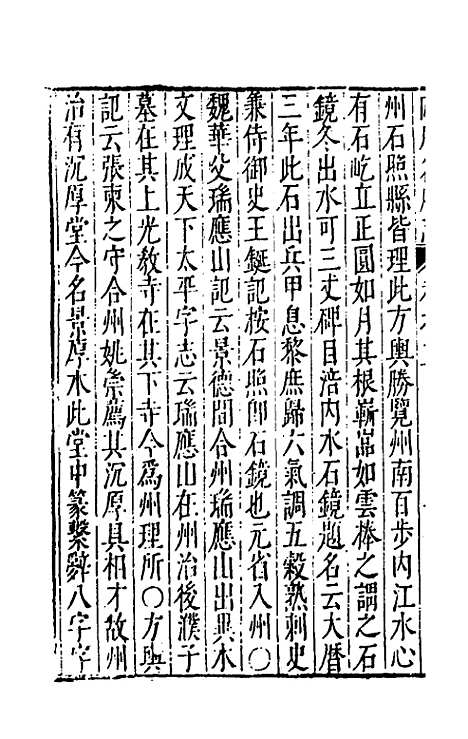 州石照縣皆理此方輿勝覽州南百步內江水心
有石屹立正圓如月其根嶄嵓如雲棒之謂之石
鏡冬出水可三丈碑目涪內水石鏡題名云大曆
三年此石出兵甲息黎庶歸六氣調五穀熟刺史
兼侍御史王鋋記按石照卽石鏡也元省入州〇
魏華父瑞應山記云景德間合州瑞應山出異木
文理成天下太平字志云瑞應山在州治後濮子
墓在其上光教寺在其下寺今爲州理所〇方輿
記云張柬之守合州姚崇薦其沉厚具相才故州
治有沉厚堂今名景厚水此堂中篆繫辭八字字